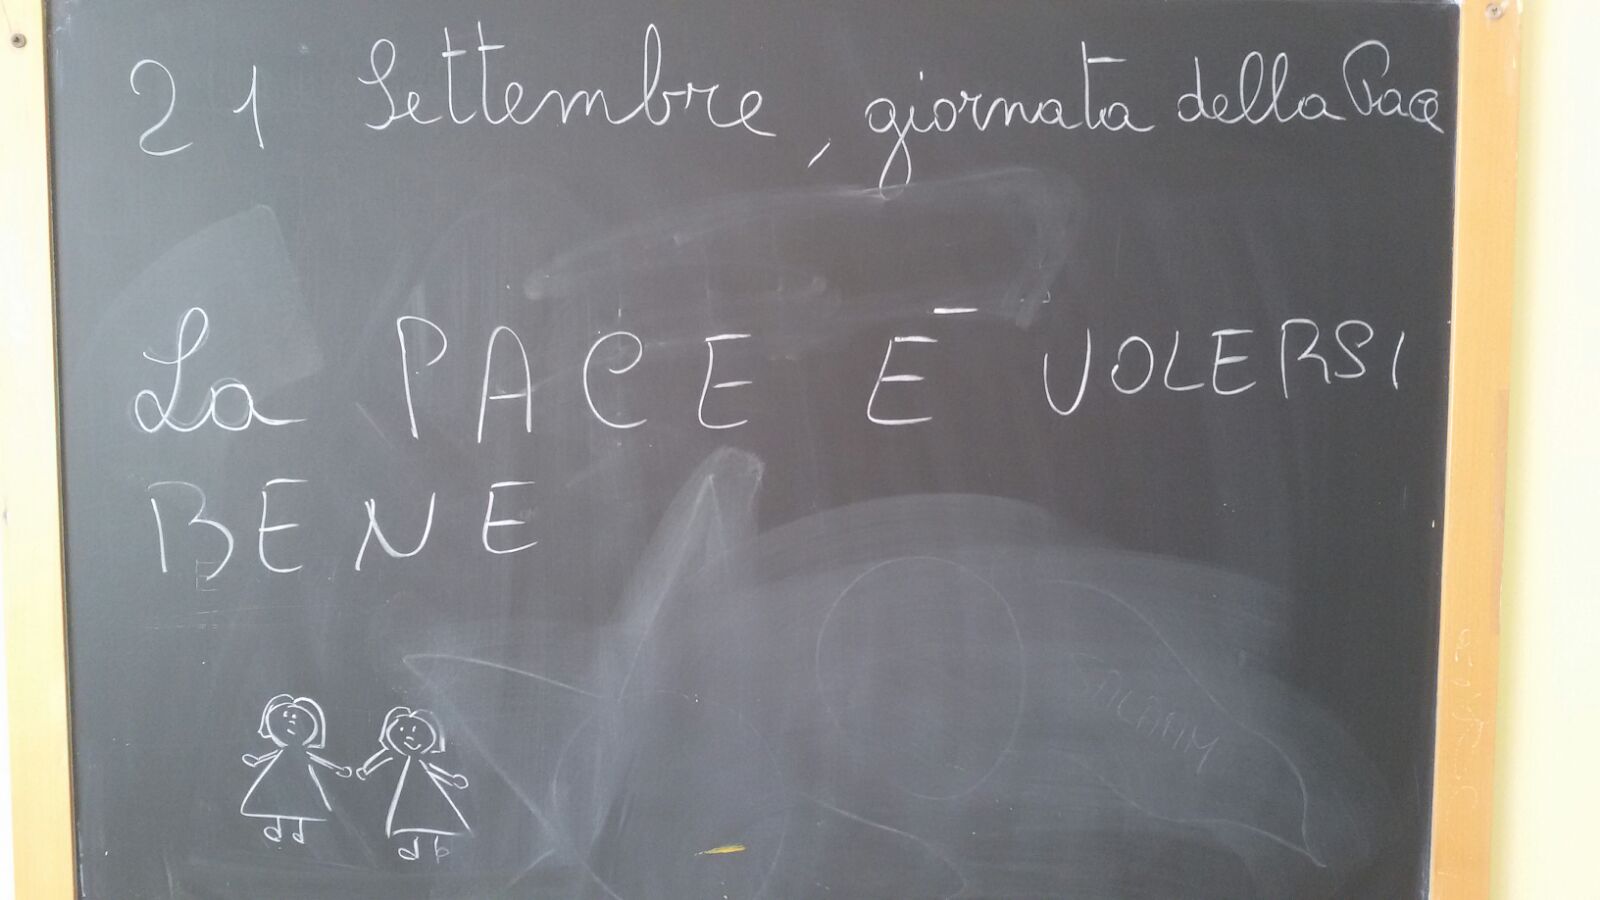 21 Settembre, giornata della Pace
La PACE È VOLERSI
BENE